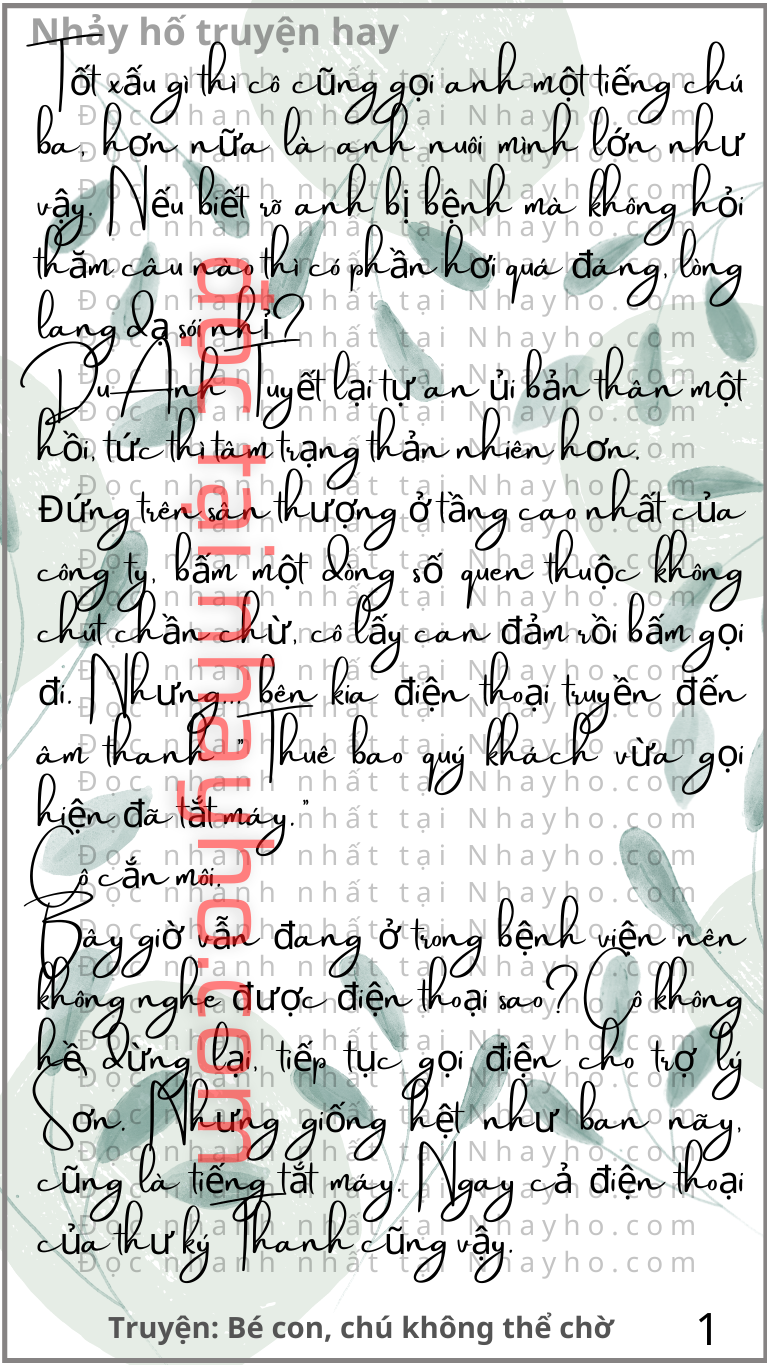 Nhảy hố truyện hay
Tốt xấu gì thì cô cũng gọi anh một tiếng chú
ba, hơn nữa là anh nuôi mình lớn như
vậy. Nếu biết rõ anh bị bệnh mà không hỏi
thăm câu nào thì có phần hơi quá đáng, lòng
lang dạ sói nhỉ?
Du Ánh Tuyết lại tự an ủi bản thân một
hồi, tức thì tâm trạng thản nhiên hơn.
Đứng trên sân thượng ở tầng cao nhất của
công ty, bấm một dòng số quen thuộc không
chút chần chừ, cô lấy can đảm rồi bấm gọi
đi. Nhưng... bên kia điện thoại truyền đến
âm thanh " Thuê bao quý khách vừa gọi
hiện đã tắt máy."
Cô cắn môi.
Bây giờ vẫn đang ở trong bệnh viện nên
không nghe được điện thoại sao? Cô không
hề dừng lại, tiếp tục gọi điện cho trợ lý
Sơn. Nhưng giống hệt như ban nãy,
cũng là tiếng tắt máy. Ngay cả điện thoại
của thư ký Thanh cũng vậy.
đọc tại nhayho.com
Đọc nhanh nhất tại Nhayho.com
Truyện: Bé con, chú không thể chờ
1